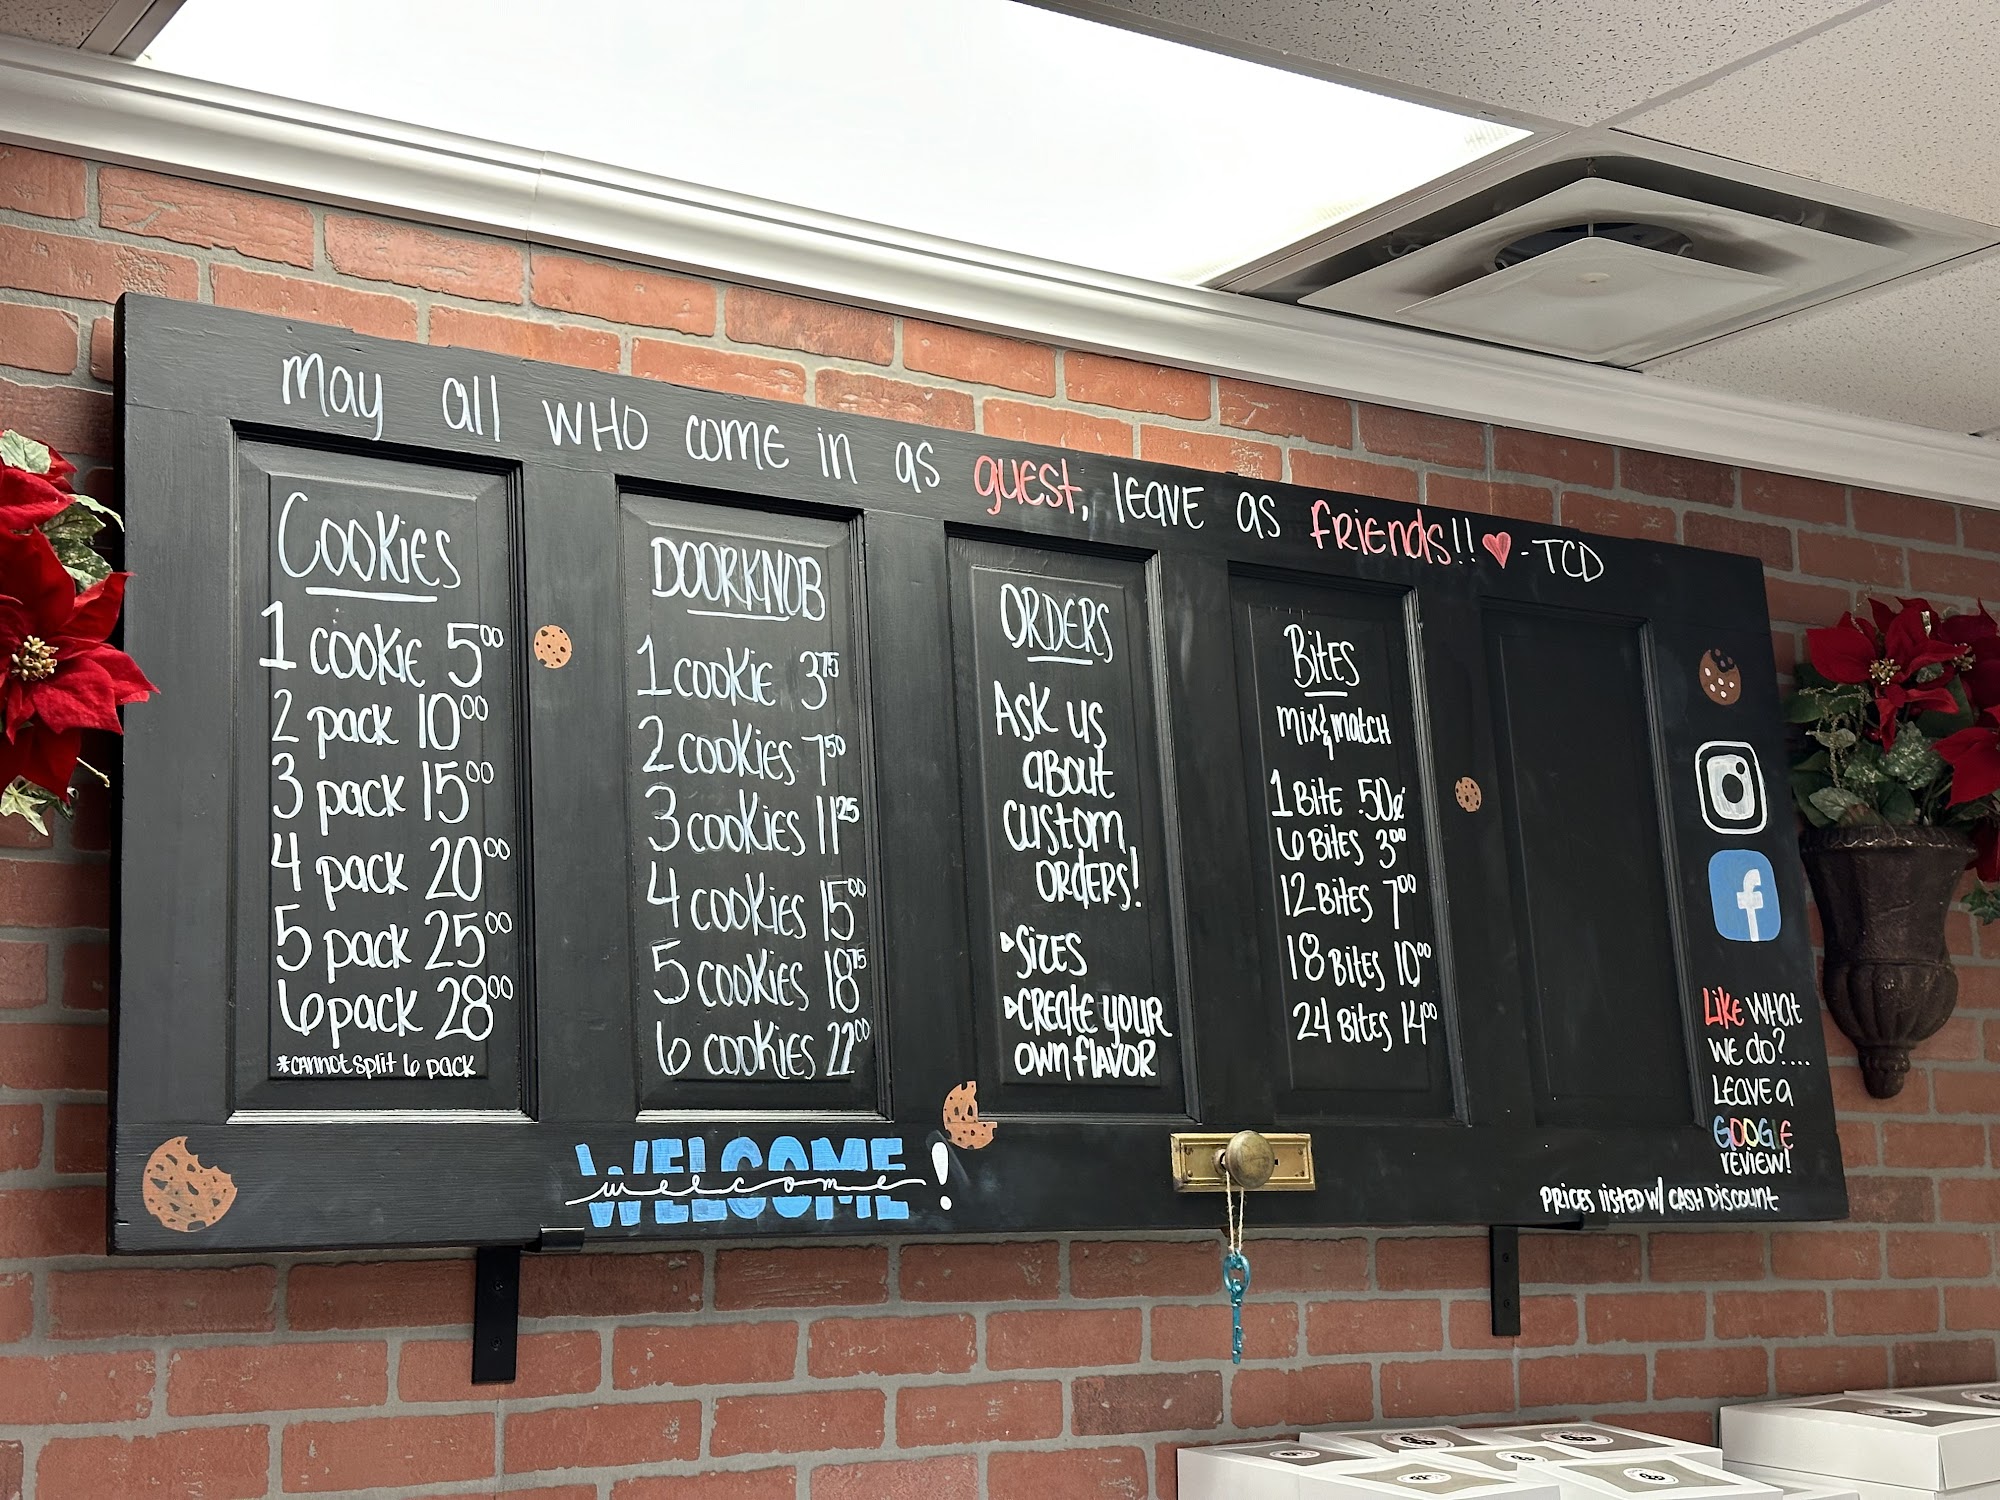 may all WHO come in as guest, leave as friends!! -TCD
Cookies
1 cookie 5⁰⁰
2 pack 10⁰⁰
3 pack 15⁰⁰
4 pack 20⁰⁰
5 pack 25⁰⁰
6 pack 28⁰⁰
*cannot split 6 pack
DOORKNOB
1 cookie 3⁷⁵
2 cookies 7⁵⁰
3 cookies 11²⁵
4 cookies 15⁰⁰
5 cookies 18⁷⁵
6 cookies 22⁰⁰
ORDERS
Ask us
about
custom
orders!
Sizes
Create your
own flavor
Bites
mix & match
1 Bite .50¢
6 Bites 3⁰⁰
12 Bites 7⁰⁰
18 Bites 10⁰⁰
24 Bites 14⁰⁰
f
Like what
we do?....
Leave a
GOOGLE
review!
WELCOME!
welcome
Prices listed w/ cash discount